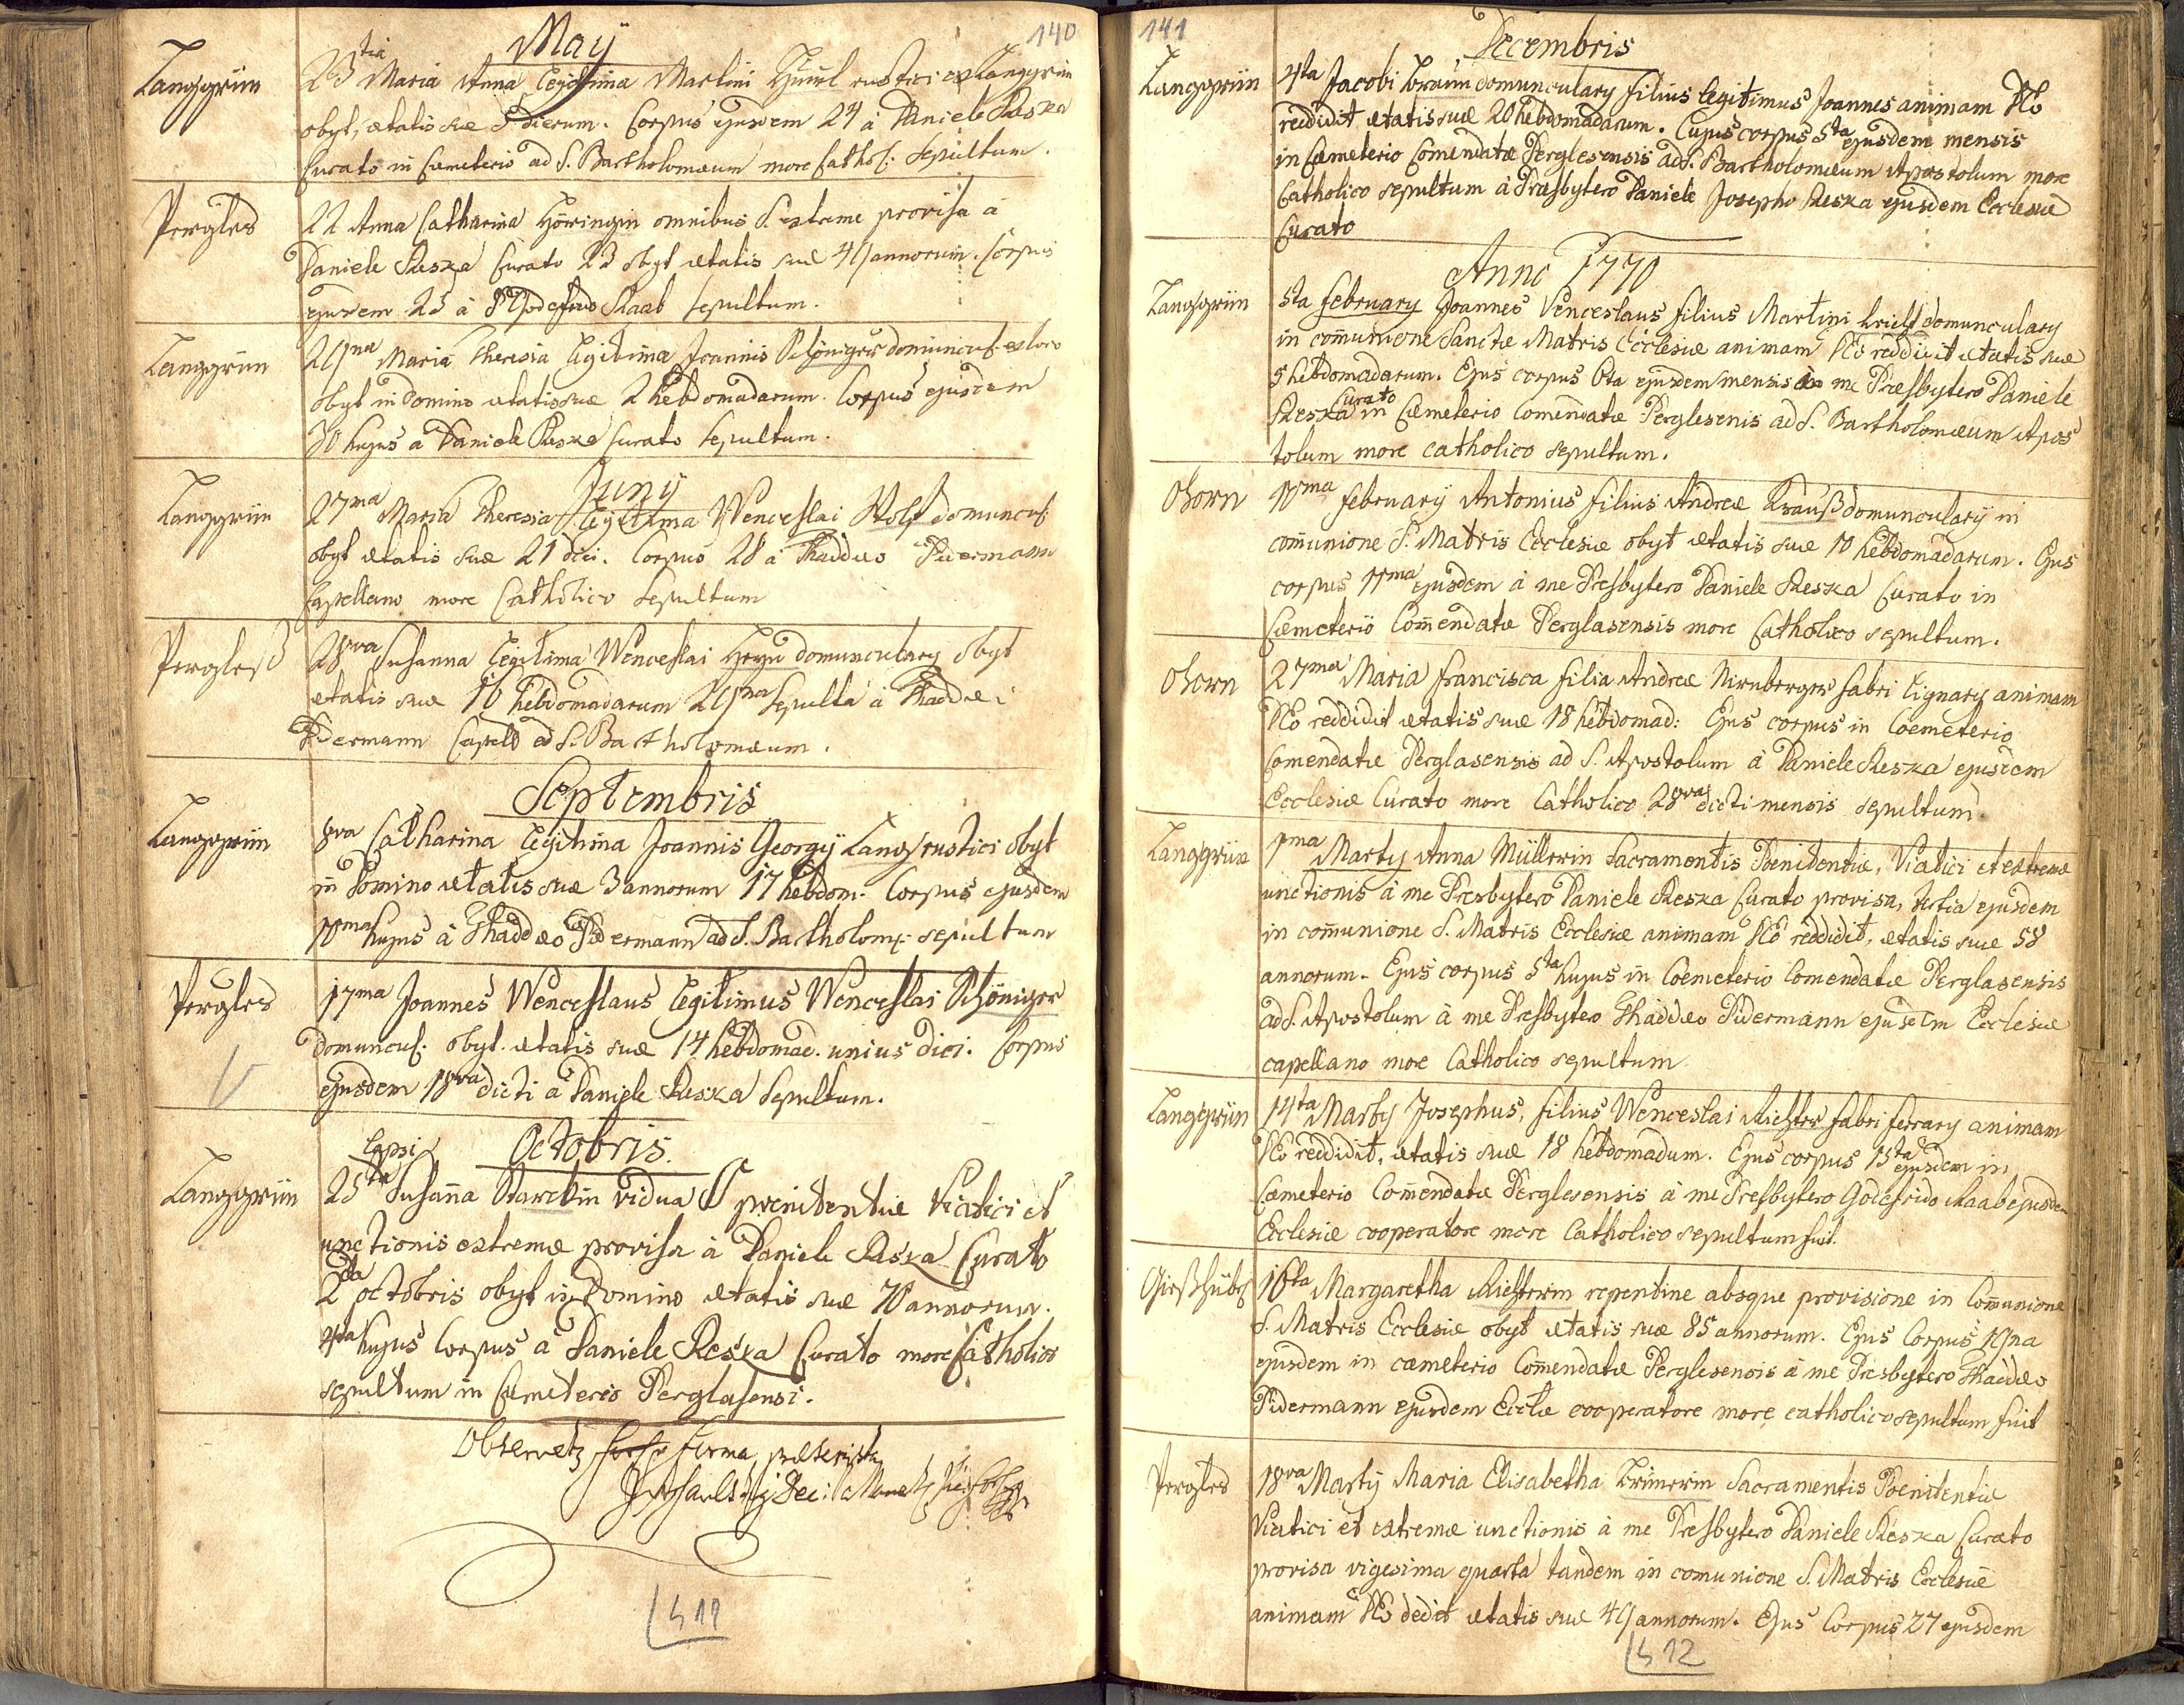 140
May
Langgrün
23tia Maria Anna legitima Martini rustici ex Langgrün
obyt, ætatis suæ 5 dierum. Corpus ejusdem 24 à Daniele Reska
Curato in Cæmeterio ad S. Bartholomæum more Cathol: sepultum.
Pergles
22 Anna Catharina Höringin omnibus S. extreme provisa à
Daniele Reska Curato 23 obyt ætatis suæ 49 annorum. Corpus
ejusdem 25 à Raab sepultum.
Langgrün
29na Maria Theresia legitima Joannis Schöniger domuncul. ex loco
obyt in Domino ætatis suæ 2 hebdomadarum. Corpus ejusdem
30 hujus a Daniele Reska Curato sepultum.
Juny
Langgrün
27ma Maria Theresia legitima Wenceslai Wolf domuncul.
obyt ætatis suæ 21 diei. Corpus 28 à Thaddæo Pidermann
Capellano more Catholico sepultum
Pergleß
28va Susanna legitima Wenceslai Heyn domunculary obyt
ætatis suæ 10 hebdomadarum 29na sepulta à Thaddæi
Pidermann ad S. Bartholomæum.
Septembris
Langgrün
8va Catharina legitima Joannis Georgy Lang rustici obyt
in Domino ætatis suæ 3 annorum 17 hebdom: Corpus ejusdem
10ma hujus à Thaddæo Pidermann ad S. Bartholom: sepultum
Pergles
17ma Joannes Wenceslaus legitimus Wenceslai Schöniger
domuncul. obyt. ætatis suæ 14 hebdomad. unius diei. Corpus
ejusdem 18va dicti à Daniele Reska sepultum.
Octobris.
lapsi
Langgrün
25ta Susanna Starckin vidua S pœnitentiæ Viatici et
unctionis extremæ provisa à Daniele Reska Curato
2da octobris obyt in Domino ætatis suæ 70 annorum.
4ta hujus Corpus à Daniele Reska Curato more Catholico
sepultum in Cæmeterio Perglasensi.
Observetur forma præscripta
L 11
141
Decembris
Langgrün
4ta Jacobi domunculary filius legitimus Joannes animam Deo
reddidit ætatis suæ 20 hebdomadarum. Cujus corpus 5ta ejusdem mensis
in Cæmeterio Comendatæ Perglesensis ad S. Bartholomæum Apostolum more
Catholico sepultum à Præsbytero Daniele Josepho Reska ejusdem Ecclesiæ
Curato
Anno 1770
Langgrün
5ta february Joannes Venceslaus filius Martini domunculary
in comunione Sanctæ Matris Ecclesiæ animam Deo reddidit ætatis suæ
5 hebdomadarum. Ejus corpus 6ta ejusdem mensis à me Præsbytero Daniele
Reska Curato in Cæmeterio Comendatæ Perglesensis ad S. Bartholomæum Apos
tolum more catholico sepultum.
Ohorn
10ma february Antonius filius Andreæ Krauß domunculary in
comunione S. Matris Ecclesiæ obyt ætatis suæ 10 hebdomadarum. Ejus
corpus 11ma ejusdem à me Presbytero Daniele Reska Curato in
Cæmeterio Comendatæ Perglasensis more Catholico sepultum.
Ohorn
27ma Maria Francisca filia Andreæ Nirnberger fabri lignary animam
Deo reddidit ætatis suæ 18 hebdomad: Ejus corpus in Coemeterio
Comendatæ Perglasensis ad S. Apostolum à Daniele Reska ejusdem
Ecclesiæ Curato more Catholico 28va dicti mensis sepultum.
Langgrün
1ma Marty Anna Müllerin Sacramentis Pœnitentiæ, Viatici et extremæ
unctionis à me Presbytero Daniele Reska Curato provisa, tertia ejusdem
in comunione S. Matris Ecclesiæ animam Deo reddidit, ætatis suæ 58
annorum. Ejus corpus 5ta hujus in Coemeterio Comendatæ Perglasensis
ad S. Apostolum à me Presbytero Thaddæo Pidermann ejusdem Ecclesiæ
capellano more Catholico sepultum
Langgrün
14ta Marty Josephus, filius Wenceslai Richter fabri ferrary animam
Deo reddidit, ætatis suæ 18 hebdomadum. Ejus corpus 15ta ejusdem in
Cæmeterio Comendatæ Perglesensis à me Presbytero Godefrido Raab ejusdem
Ecclesiæ cooperatore more Catholico sepultum fuit.
Gießhübl
16ta Margaretha Richterin repentine absque provisione in Comunione
S. Matris Ecclesiæ obyt ætatis suæ 85 annorum. Ejus Corpus 19na
ejusdem in cæmeterio Comendatæ Perglesensis à me Presbytero Thaddæo
Pidermann ejusdem Ecclæ cooperatore more catholico sepultum fuit
Pergles
18va Marty Maria Elisabetha Sacramentis Pœnitentiæ
Viatici et extremæ unctionis à me Presbytero Daniele Reska Curato
provisa vigesima quarta tandem in comunione S. Matris Ecclesiæ
animam Deo dedit ætatis suæ 49 annorum. Ejus Corpus 27 ejusdem
L 12